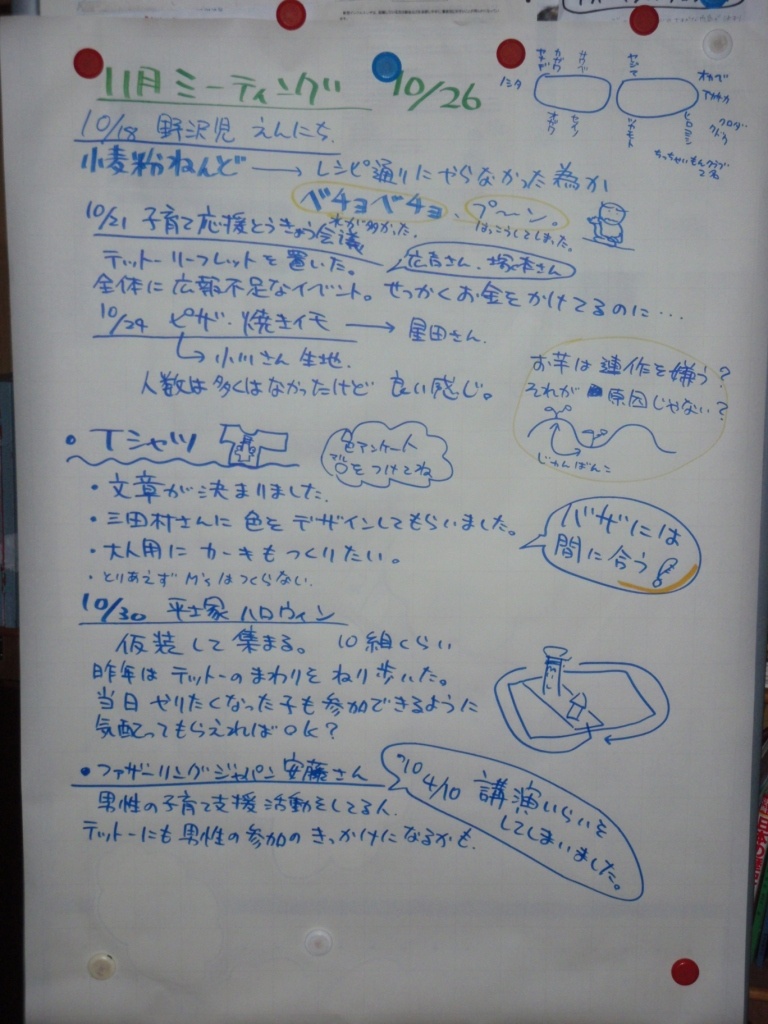 11月 ミーティング 10/26
ノシタ
ヤマギ
カガワ
サワビ
オガワ
セイノ
ヤジマ
ツカモト
オカベ
ヒロヨシ
クロダ
クドウ
ちっちゃいもんクラブ
2名
10/18 野沢児 えんにち.
小麦粉ねんど → レシピ通りにやらなかった為か
ベチョベチョ、プ〜ン。
水が多かった.
はっこうしてしまった。
10/21 子育て応援とうきょう会議
テットーリーフレットを置いた。
広吉さん、塚本さん
全体に広報不足なイベント。せっかくお金をかけてるのに…
10/24 ピザ・焼きイモ → 星田さん.
小川さん 生地.
人数は多くはなかったけど 良い感じ。
お芋は連作を嫌う?
それが 原因じゃない?
じゅんばんこ
・Tシャツ
色アンケート
マル
○をつけてね
・文章が決まりました.
・三田村さんに 色を デザインしてもらいました。
・大人用に カーキもつくりたい。
・とりあえず M'sはつくらない.
バザには
間に合う!
10/30 平士塚 ハロウィン
仮装して 集まる。 10組くらい
昨年は テットーのまわりを ねり歩いた。
当日 やりたくなった子も参加できるように
気配ってもらえればOK?
・ファザーリングジャパン 安藤さん
男性の子育て支援活動をしてる人.
テットーにも男性の参加の きっかけになるかも.
'10 4/10 講演いらいを
してしまいました。